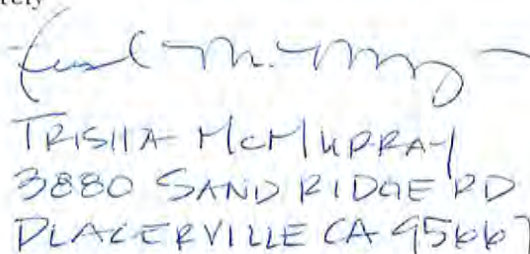 TRISHA McMURRAY
3880 SAND RIDGE RD
PLACERVILLE CA 95667